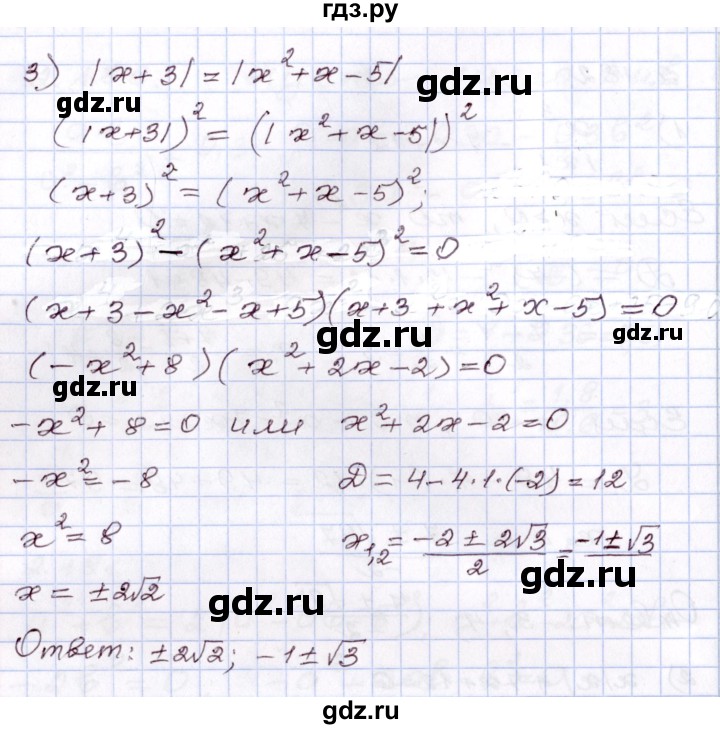 гдз.ру
3) |x+3| = |x²+x-5|
gdz.ru
gdz.ru
(|x+3|)² = (|x²+x-5|)²
(x+3)² = (x²+x-5)²;
(x+3)² - (x²+x-5)² = 0
(x+3-x²-x+5)(x+3+x²+x-5) = 0
gdz.ru
(-x²+8)(x²+2x-2) = 0
gdz.ru
-x²+8=0 или x²+2x-2=0
-x²=-8 Д = 4-4·1·(-2) = 12
x²=8 x₁,₂ = (-2±2√3)/2 = -1±√3
gdz.ru
x = ±2√2
gdz.ru
Ответ: ±2√2; -1±√3
gdz.ru
gdz.ru